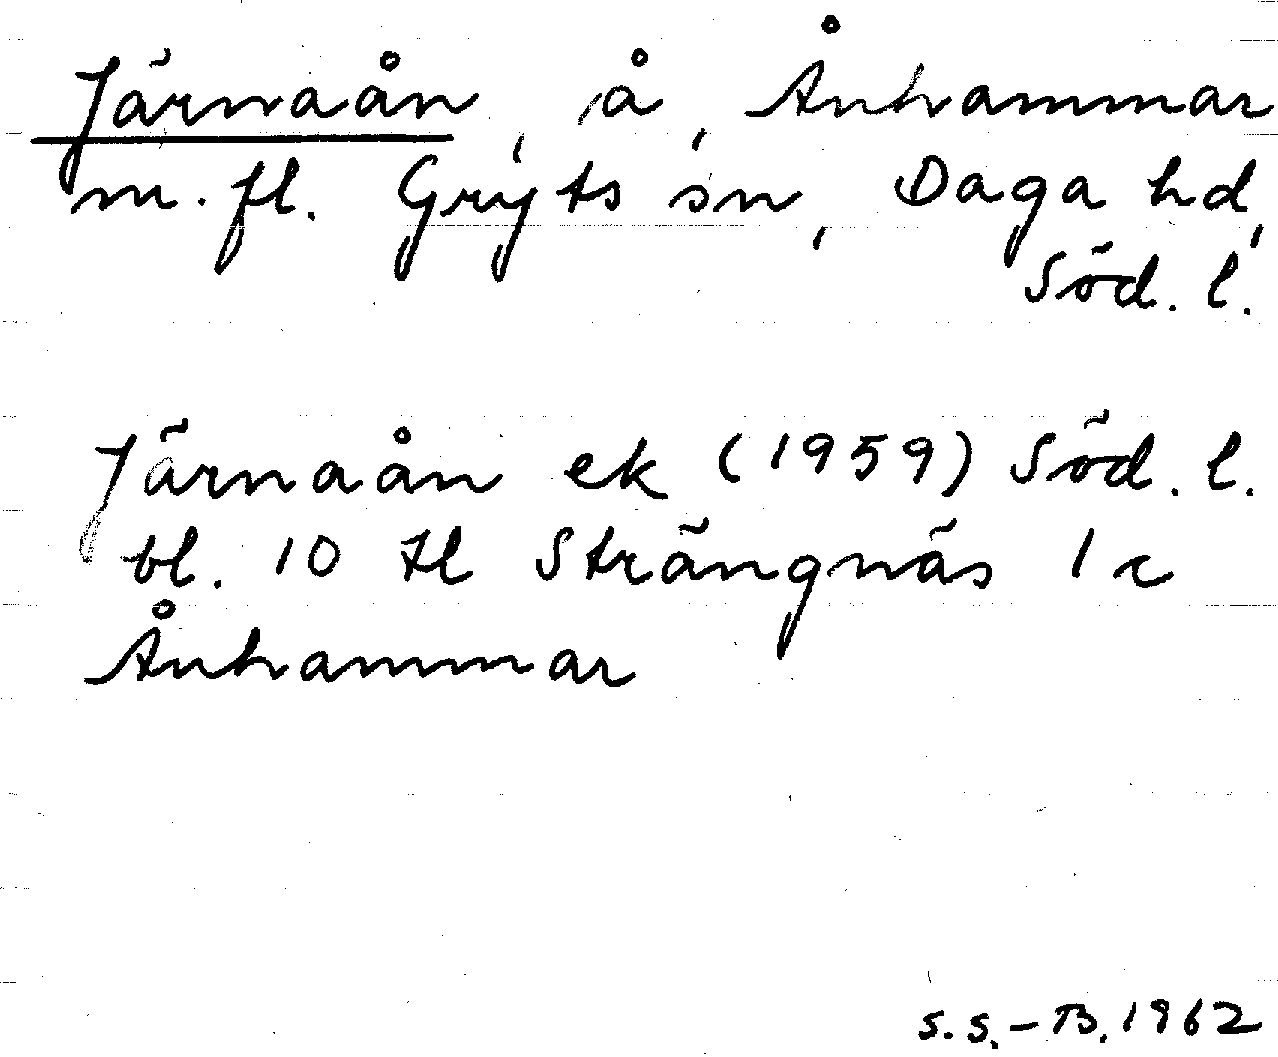 Järnaån, å, Ånhammar
m. fl. Gryts sn, Daga hd,
Söd. l.
Järnaån ek (1959) Söd. l.
bl. 10 tl Strängnäs 1 c
Ånhammar
S.S.-B. 1962